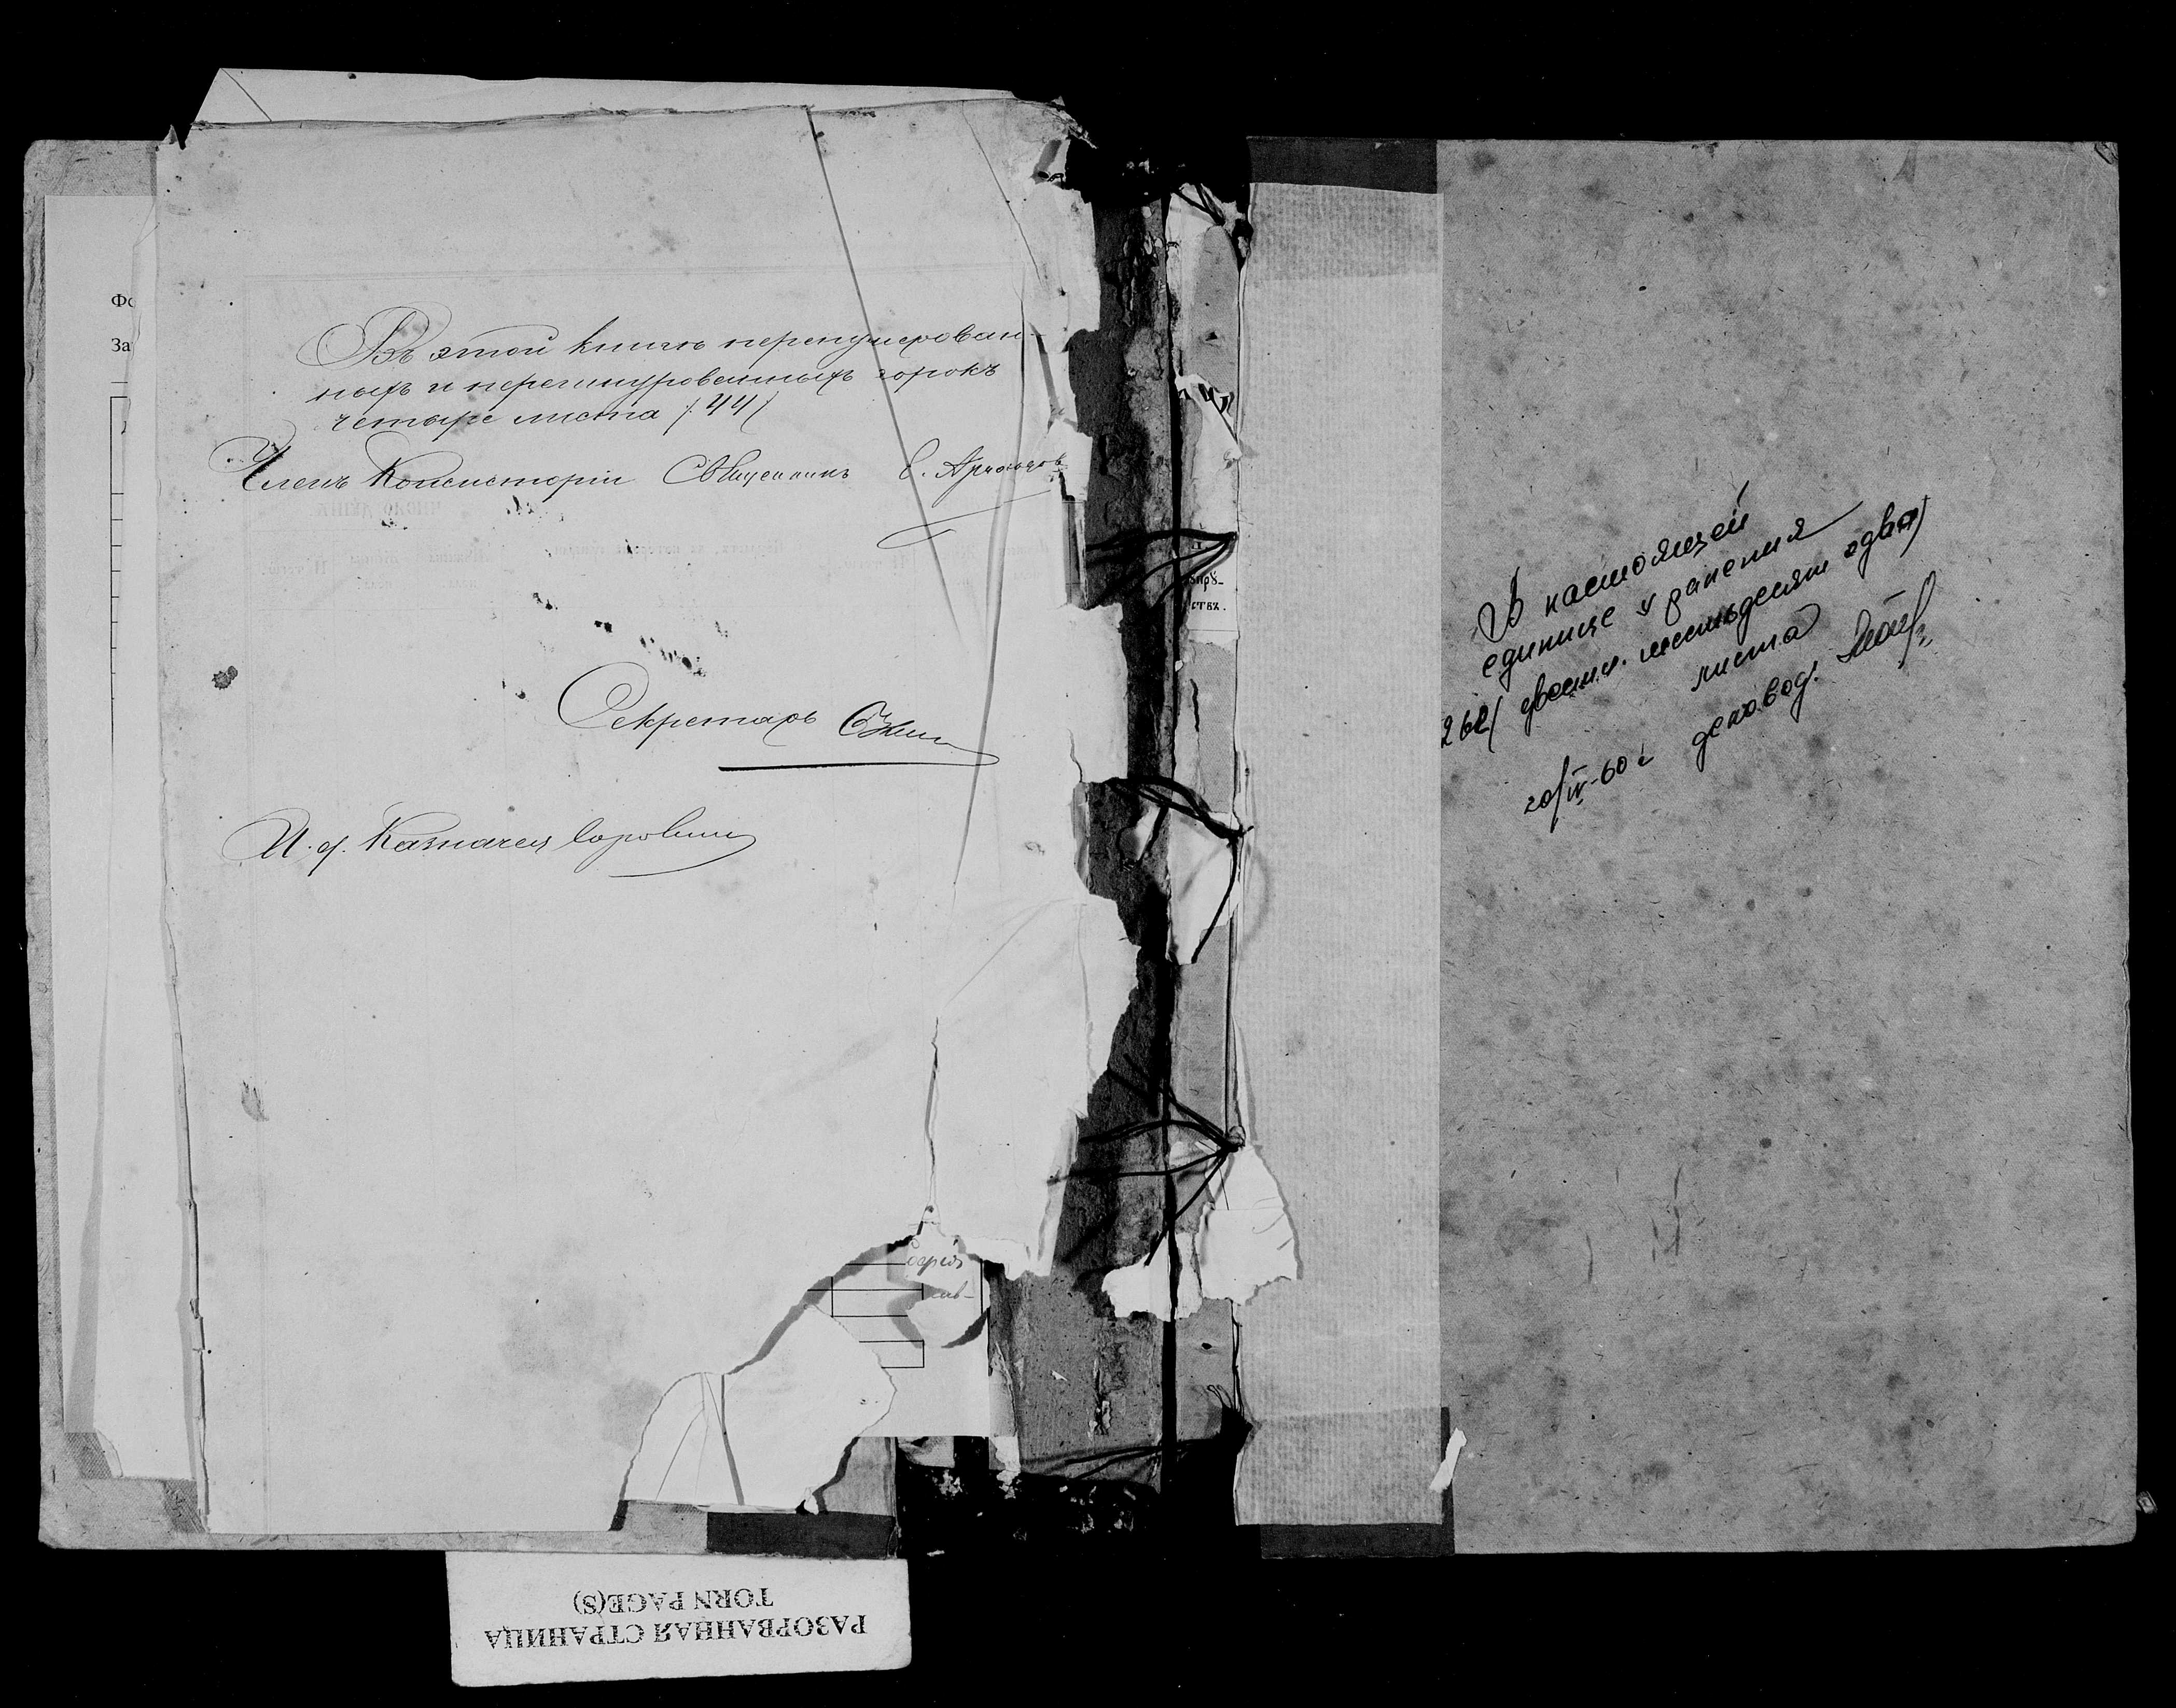 Въ этой книгѣ перенумерован-
ныхъ и перешнурованныхъ сорокъ
четыре листа /44/
Членъ Консисторіи Священникъ С.
Секретарь
И. д. Казначея
Фо
За
серія
В настоящей
единице хранения
262/ двести шестьдесят два/
листа
20/IV-60 г деловод.
РАЗОРВАННАЯ СТРАНИЦА
TORN PAGE(S)